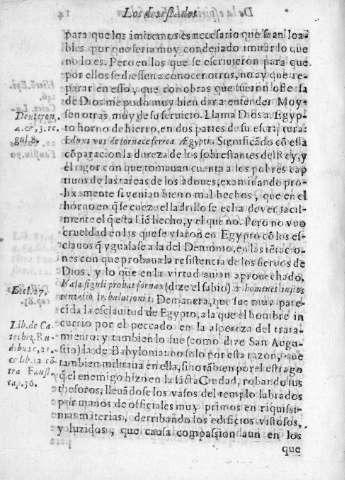 Los desterrados
para que los imitemos es necesario que sean loa-
bles porque seria muy condenado imitar lo que
no lo es. Pero en los que se escriuieron para que
por ellos se diessen a conocer otros, no ay que re-
parar en esso y que con obras que fueron
de Dios me pudo muy bien dar a entender Moy-
sen otras, muy de su seruicio. Llama Dios a Egyp-
to horno de hierro, en dos partes de su escritura:
Eduxi vos de fornace ferrea Ægypti. Significãdo cõ esta
cõparacion la dureza de los sobrestantes del Rey, y
el rigor con que tomauan cuenta a los pobres cap
tiuos de las tareas de los adoues, examinando pro-
lixamente si venian bien o mal hechos, que en el
horno en q̃ se cuez el ladrillo se echa de ver facil-
mente el que està biẽ hecho, y el que no. Pero no vuo
crueldad en las que se vsaron en Egypto cõ los es-
clauos q̃ ygualasse a la del Demonio, en las
nes con que probaua la resistencia de los sieruos de
Dios, y lo que en la virtud auian aprouechado,
Vasa figuli probat fornax (dize el sabio) & homines iustos
tentatio tribulationis. De manera, que fue muy pare-
cida la esclauitud de Egypto, a la que el hombre in-
currio por el peccado en la aspereza del trata-
miento: y tambien lo fue (como dize San Augu-
stin) la de Babylonia: no solo por esta razon, que
tambien militaua en ella, sino tãbien por el estrago
q̃ el enemigo hizo en la sãcta Ciudad, robando sus
thesoros, lleuãdose los vasos del templo labrados
por manos de officiales muy primos en riquissi-
mas materias, derribando los edificios vistosos,
y luzidos, que causa compassion aun en los
que
Deuteron.
Eccl. 27.
Lib. de Ca-
tra Faust.
cap. 36.